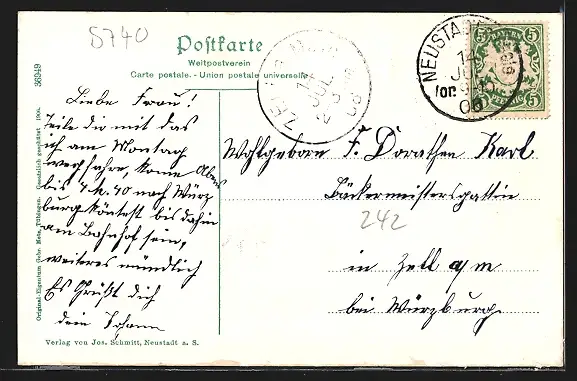 5740
Postkarte
Weltpostverein
Carte postale. - Union postale universelle.
36949
Original-Eigentum Gebr. Metz, Tübingen. Gesetzlich geschützt 1904.
Liebe Frau!
Teile dir mit das
ich am Montag
wegfahre, kome Abens
bis 7 M. 40 nach Würz
burg könntest bis dahin
am Bahnhof sein,
weiteres mündlich
Es Grüßt dich
dein Johann
Verlag von Jos. Schmitt, Neustadt a. S.
ZELL
JUL
NEUSTADT
14
JUL
06
5 BAYERN 5
5 PFENNIG 5
Wohlgeborn F. Dorathea Karl
Bäckermeistersgattin
242
in Zell a/M
bei Würzburg.